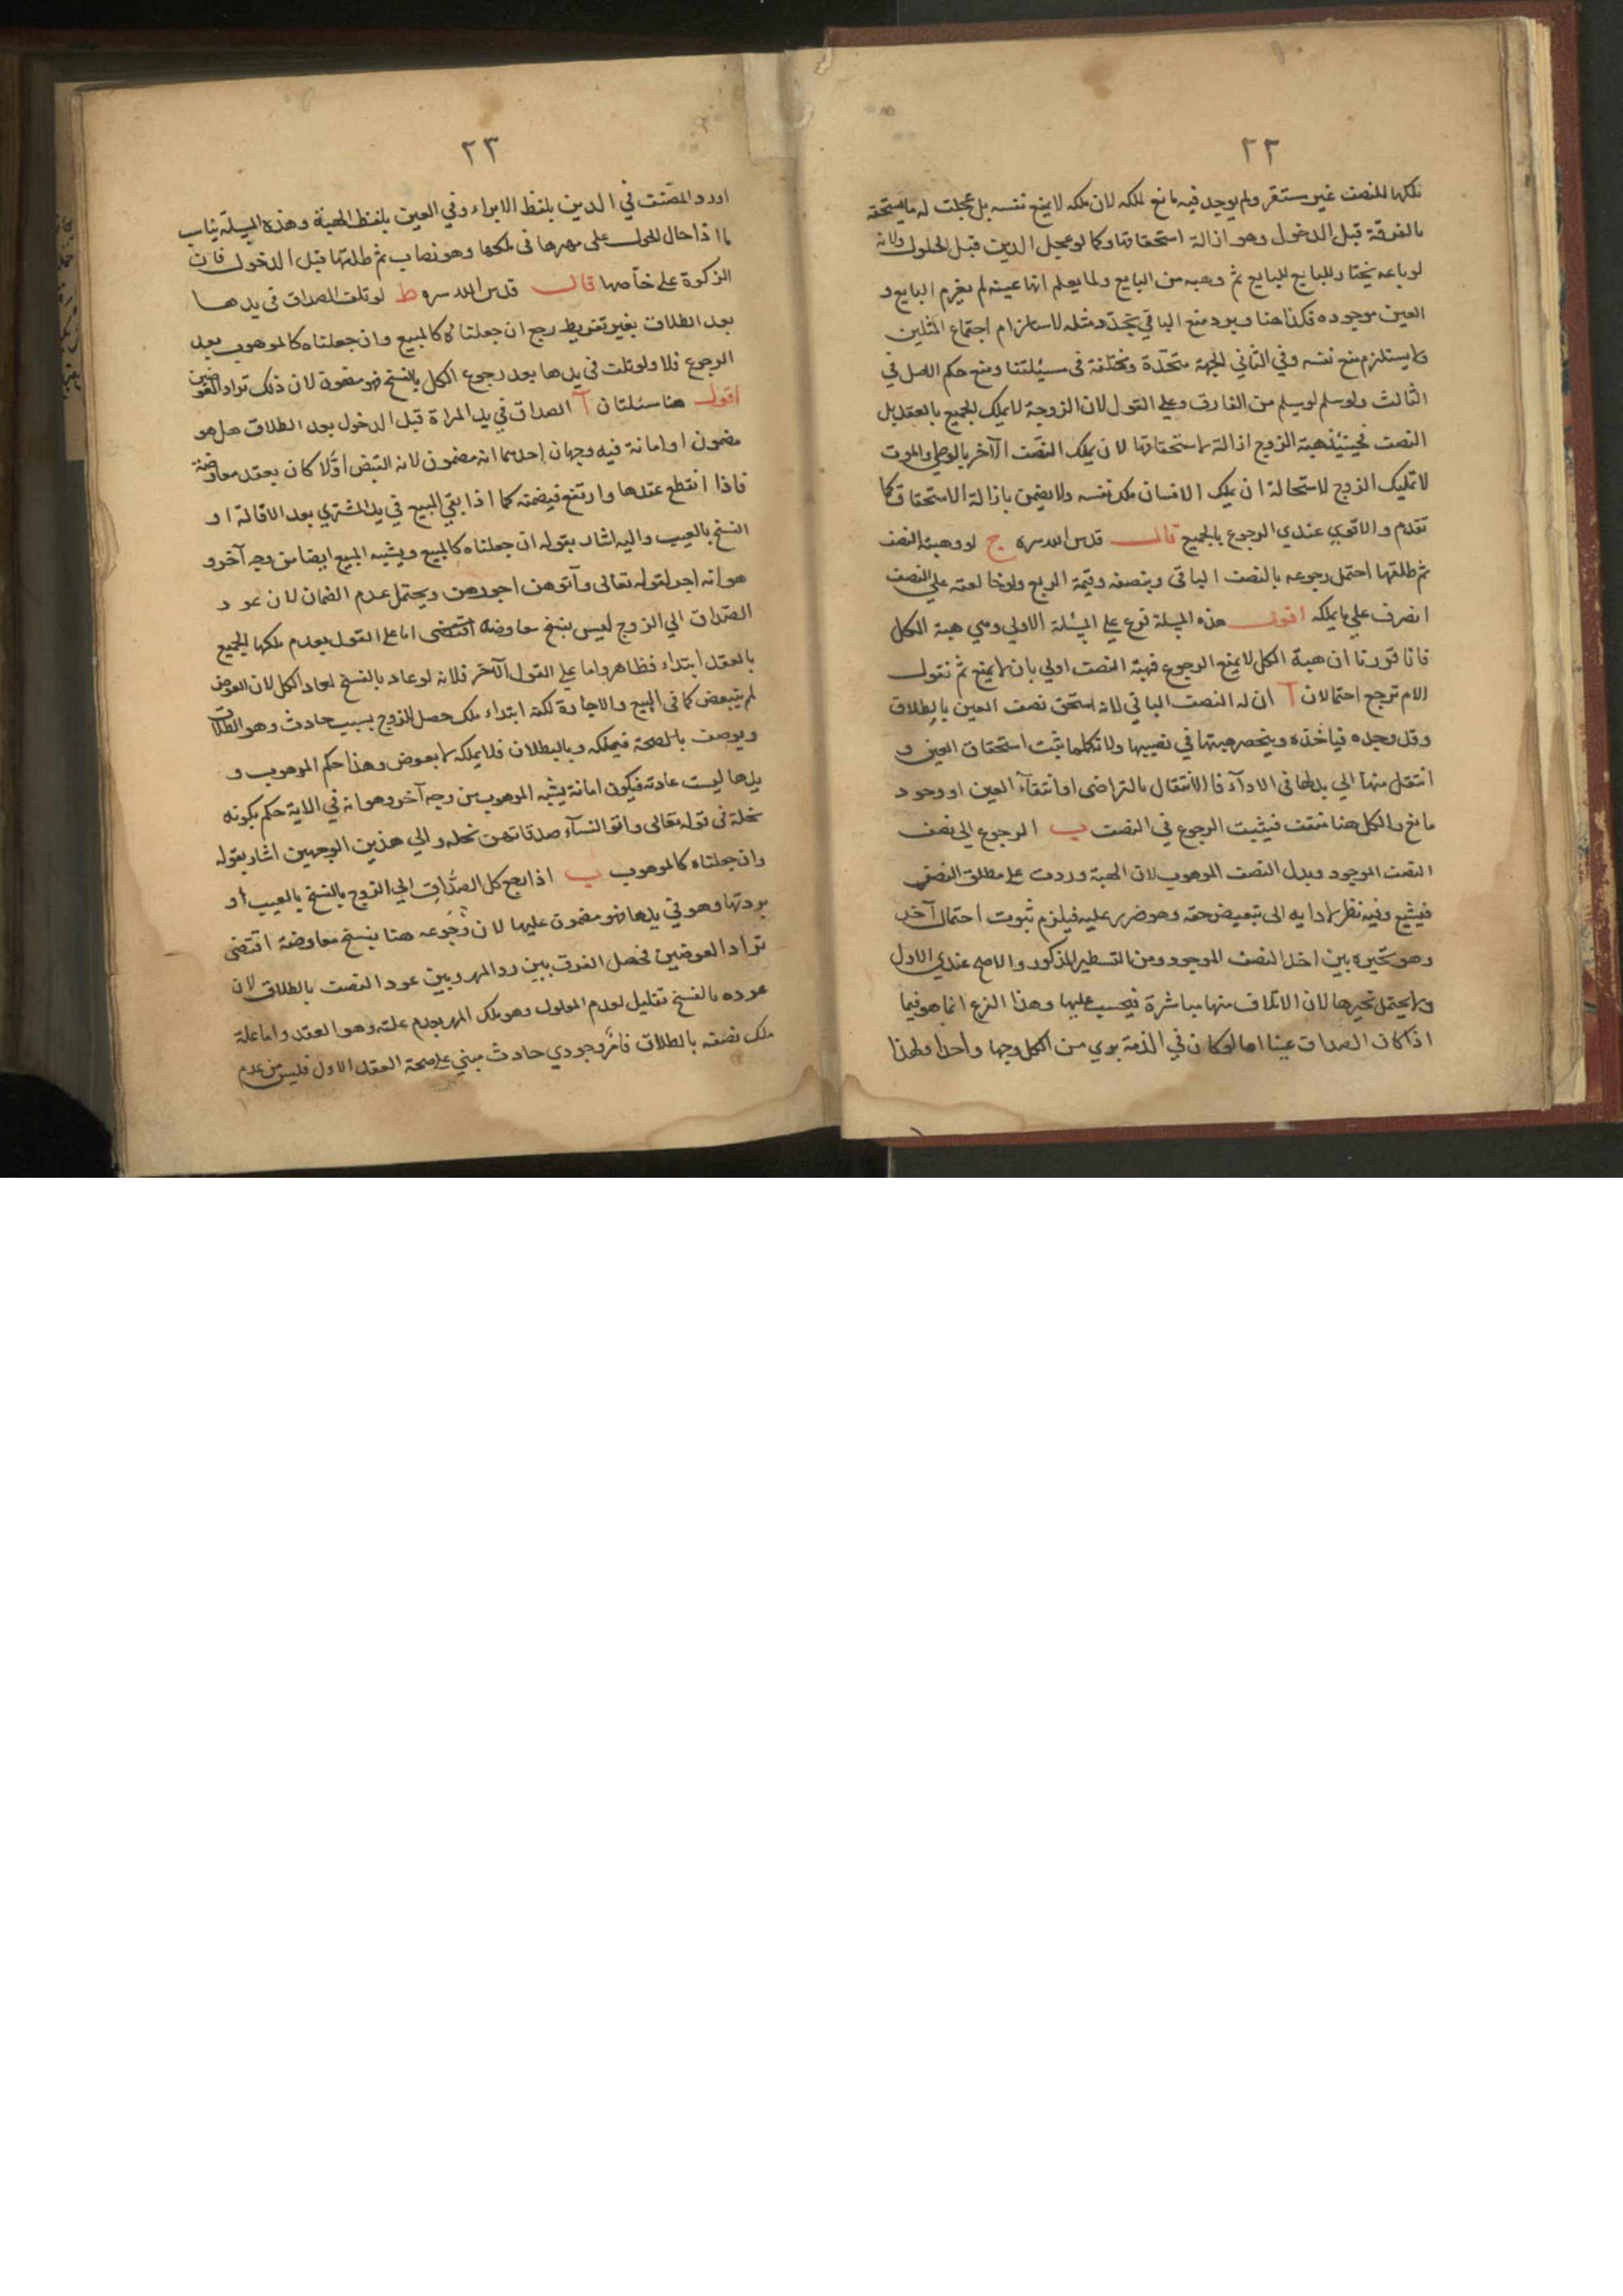 ٢٢
ملكها للنصف غير مستقر ولم يوجد فيه مانع لملكه لان ملكه لا يمنع نفسه بل عجلت له ما يستحقه
بالفرقة قبل الدخول وهو ازالة استحقاقها وكما لو عجل الدين قبل الحلول ولانه
لو باعه بخيار للبايع ثم وهبه من البايع ولما يعلم انها عينه لم يغرم البايع و
العين موجوده فكذا هنا ويرد منع الباقي بتجدد مثله لاستلزام اجتماع المثلين
ولا يستلزم منع نفسه وفي الثاني الجهة متحدة ومختلفة في مسئلتنا ومنع حكم الاصل في
الثالث ولو سلم لم يسلم من الفارق وعلى القول لان الزوجة لا يملك الجميع بالعقد بل
النصف فحينئذ هبة الزوج ازالة لاستحقاقها لان يملك النصف الآخر بالوطي والموت
لا تمليك الزوج لاستحالة ان يملك الانسان ملك نفسه ولا يضمن بازالة الاستحقاق كما
تقدم والاقوي عندي الرجوع بالجميع قال قدس الله سره ج لو وهبته النصف
ثم طلقها احتمل رجوعه بالنصف الباقي وبنصفه وقيمة الربع ولو خالعته على النصف
انصرف علي ما يملكه اقول هذه المسئلة فرع علي المسئلة الاولي وهي هبة الكل
فانا قررنا ان هبة الكل لا يمنع الرجوع فهبة النصف اولي بان لا يمنع ثم نقول
الام ترجع احتمالان آ ان له النصف الباقي لانه استحق نصف العين بالطلاق
وقد وجده فياخذه وينحصر هبتها في نصيبها ولانه كلما يثبت استحقاق العين و
انتقل منها الي بدلها في الادآء فالانتقال بالتراضى او انتفآء العين او وجود
مانع والكل هنا منتف فيثبت الرجوع في النصف ب الرجوع الى نصف
النصف الموجود وبدل النصف الموهوب لان الهبة وردت على مطلق النصف
فيشيع وفيه نظر لادايه الى تبعيض حقه وهو ضرر عليه فيلزم ثبوت احتمال آخر
وهو تخيره بين اخذ النصف الموجود ومن التسطير المذكور والاصح عندي الاول
ولا يحتمل تخيرها لان الاتلاف منها مباشرة فيحسب عليها وهذا الفرع انما هو فيما
اذا كان الصداق عينا اما لو كان في الذمة بري من الكل وجها واحدا ولهذا
٢٣
اورد المصنف في الدين بلفظ الابراء وفي العين بلفظ الهبة وهذه المسئلة يناسب
ما اذا حال الحول على مهرها في ملكها وهو نصاب ثم طلقها قبل الدخول فان
الزكوة على خآصها قال قدس الله سره ط لو تلف الصداق في يدها
بعد الطلاق بغير تفريط رجع ان جعلناه كالمبيع وان جعلناه كالموهوب بعد
الرجوع فلا ولو تلف في يدها بعد رجوع الكل بالفسخ فهو مضمون لان ذلك تراد العوضين
اقول هنا مسئلتان آ الصداق في يد المراة قبل الدخول بعد الطلاق هل هو
مضمون او امانة فيه وجهان احدهما انه مضمون لانه القبض اولا كان بعقد معاوضة
فاذا انقطع عقدها وارتفع فيضمنه كما اذا بقي المبيع في يد المشتري بعد الاقالة او
الفسخ بالعيب واليه اشار بقوله ان جعلناه كالمبيع ويشبه المبيع ايضا من وجه آخر و
هو انه اجر لقوله تعالى وآتوهن اجورهن ويحتمل عدم الضمان لان عود
الصداق الي الزوج ليس بفسخ معاوضه اقتضى اما على القول بعدم ملكها الجميع
بالعقد ابتداء فظاهر واما على القول الآخر فلانه لو عاد بالفسخ لعاد الكل لان العوض
لم يتبعض كما في البيع والاجارة لكنه ابتداء ملك حصل للزوج بسبب حادث وهو الطلاق
ويوصف بالصحة فيملكه وبالبطلان فلا يملكه لا بعوض وهذا حكم الموهوب و
يدها ليست عادته فيكون امانة يشبه الموهوب من وجه آخر وهو انه في الاية حكم بكونه
نحلة في قوله تعالى واتو النسآء صدقاتهن نحله والي هذين الوجهين اشار بقوله
وان جعلناه كالموهوب ب اذا رجع كل الصداق الي الزوج بالفسخ بالعيب او
بردتها وهو في يدها فهو مضمون عليها لان رجوعه هنا بفسخ معاوضة اقتضى
تراد العوضين فحصل الفرق بين رد المهر وبين عود النصف بالطلاق لان
عوده بالفسخ تقليل لعدم المعلول وهو ملك المهر بعدم علته وهو العقد واما علة
ملك نصفه بالطلاق فامر وجودي حادث مبني على صحة العقد الاول فليس من عدم